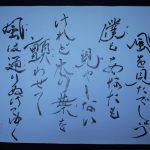 風を見たでしょう
僕もあなたも
見やしない
けれど木の葉を
顫わせて
風は通りぬけてゆく